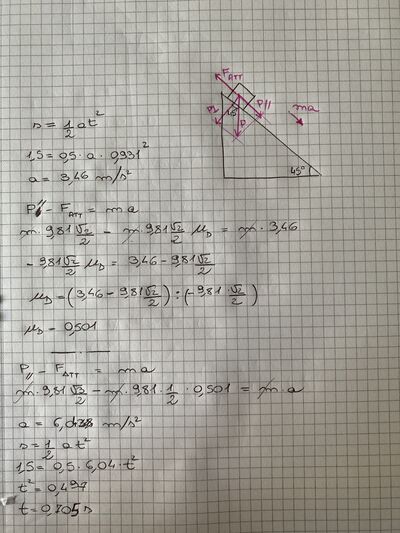 F_ATT
P⊥
45°
P
P//
ma
45°
s = 1/2 at²
1,5 = 0,5 · a · 0,931²
a = 3,46 m/s²
P// - F_ATT = ma
m · 9,81 √2/2 - m · 9,81 √2/2 μ_D = m · 3,46
- 9,81 √2/2 μ_D = 3,46 - 9,81 √2/2
μ_D = (3,46 - 9,81 √2/2) : (-9,81 · √2/2)
μ_D = 0,501
P// - F_ATT = ma
m · 9,81 √3/2 - m · 9,81 · 1/2 · 0,501 = m · a
a = 6,04 m/s²
s = 1/2 at²
1,5 = 0,5 · 6,04 · t²
t² = 0,497
t = 0,705 s